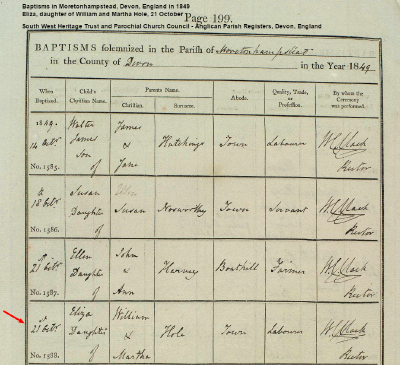 Baptisms in Moretonhampstead, Devon, England in 1849
Eliza, daughter of William and Martha Hole, 21 October
Page 199.
South West Heritage Trust and Parochial Church Council - Anglican Parish Registers, Devon, England
BAPTISMS solemnized in the Parish of Moretonhampstead
in the County of Devon in the Year 1849
When Baptized. Child's Christian Name. Parents Name. Abode. Quality, Trade, or Profession. By whom the Ceremony was performed.
Christian. Surname.
1849. Walter James
14 Octr James & Hutchings Town Labourer
Son
No. 1585. of Jane Rector
Susan Ellen
18 Octr Daughter Susan Norsworthy Town Servant
No. 1586. of Rector
Ellen John
21 Octr Daughter & Farmer
No. 1587. of Ann Rector
Eliza William
21 Octr Daughter & Hole Town Labourer
No. 1588. of Martha Rector